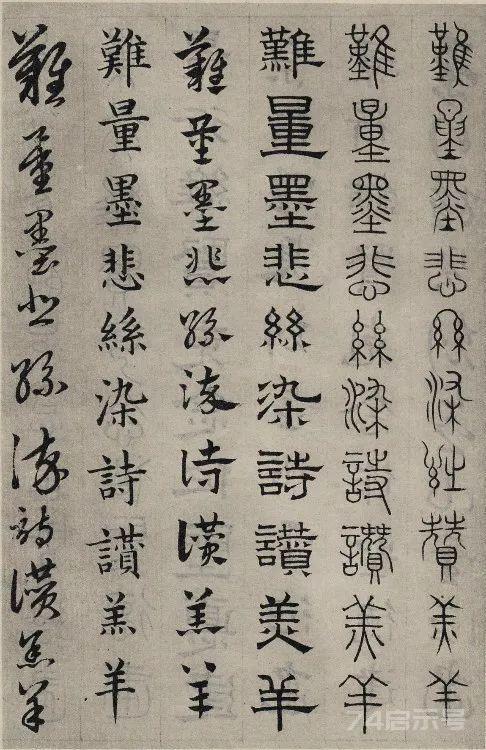 難量墨悲絲染詩讚羔羊
難量墨悲絲染詩讚羔羊
難量墨悲絲染詩讚羔羊
難量墨悲絲染詩讚羔羊
難量墨悲絲染詩讚羔羊
難量墨悲絲染詩讚羔羊
74启示号